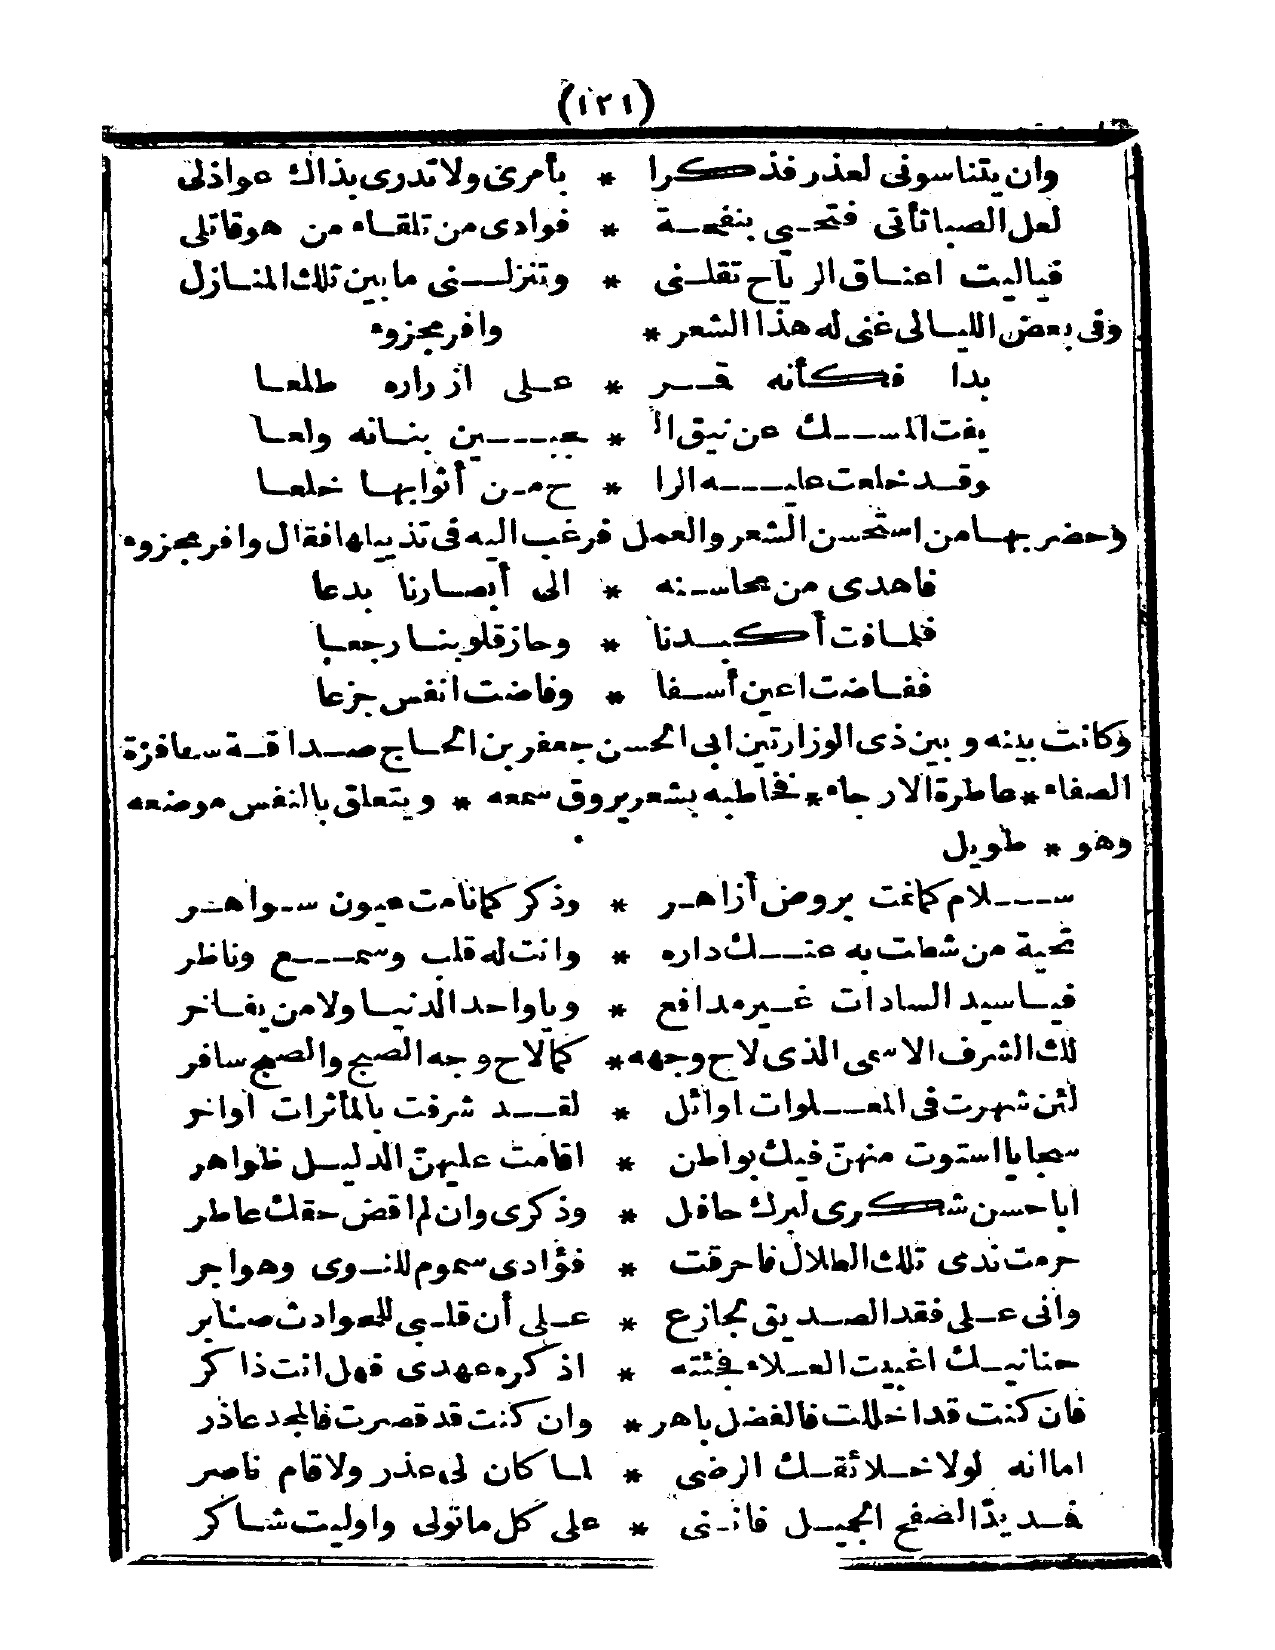 (١٢١)
وان يتناسونى لعذر فذكرا * بأمرى ولا تدرى بذاك عواذلى
لعل الصبا تأتى فتحيى بنفحة * فوادى من تلقاء من هو قاتلى
فياليت اعناق الرياح تقلنى * وتنزلنى ما بين تلك المنازل
وفى بعض الليالى غنى له هذا الشعر * وافر مجزوء
بدا فكأنه قمر * على ازراره طلعا
يفت المسك عن نيق ال * جبين بنانه ولعا
وقد خلعت عليه الرا * ح من أثوابها خلعا
وحضر بها من استحسن الشعر والعمل فرغب اليه فى تذييلها فقال وافر مجزوء
فاهدى من محاسنه * الى أبصارنا بدعا
فلما فت أكبدنا * وحاز قلوبنا رجعا
ففاضت اعين أسفا * وفاضت انفس جزعا
وكانت بينه وبين ذى الوزارتين ابى الحسن جعفر بن الحاج صداقة سافرة
الصفاء * عاطرة الارجاء * فخاطبه بشعر يروق سمعه * ويتعلق بالنفس موضعه
وهو * طويل
سلام كما غت بروض أزاهر * وذكر كما نامت عيون سواهر
تحية من شطت به عنك داره * وانت له قلب وسمع وناظر
فيا سيد السادات غير مدافع * ويا واحد الدنيا ولا من يفاخر
لك الشرف الاسمى الذى لاح وجهه * كما لاح وجه الصبح والصبح سافر
لئن شهرت فى المعلوات اوائل * لقد شرفت بالمأثرات اواخر
سجايا استوت منهنّ فيك بواطن * اقامت عليهنّ الدليل ظواهر
ابا حسن شكرى لبرك حافل * وذكرى وان لم اقض حقك عاطر
حرمت ندى تلك الظلال فاحرقت * فؤادى سموم للنوى وهواجر
وانى على فقد الصديق لجازع * على أن قلبى للحوادث صابر
حنانيك اغببت العلاء فجئته * اذكره عهدى فهل انت ذاكر
فان كنت قد اخللت فالفضل باهر * وان كنت قد قصرت فالمجد عاذر
اما انه لولا خلائقك الرضى * لما كان لى عذر ولا قام ناصر
فمد يدّ الصفح الجميل فاننى * على كل ما تولى واوليت شاكر